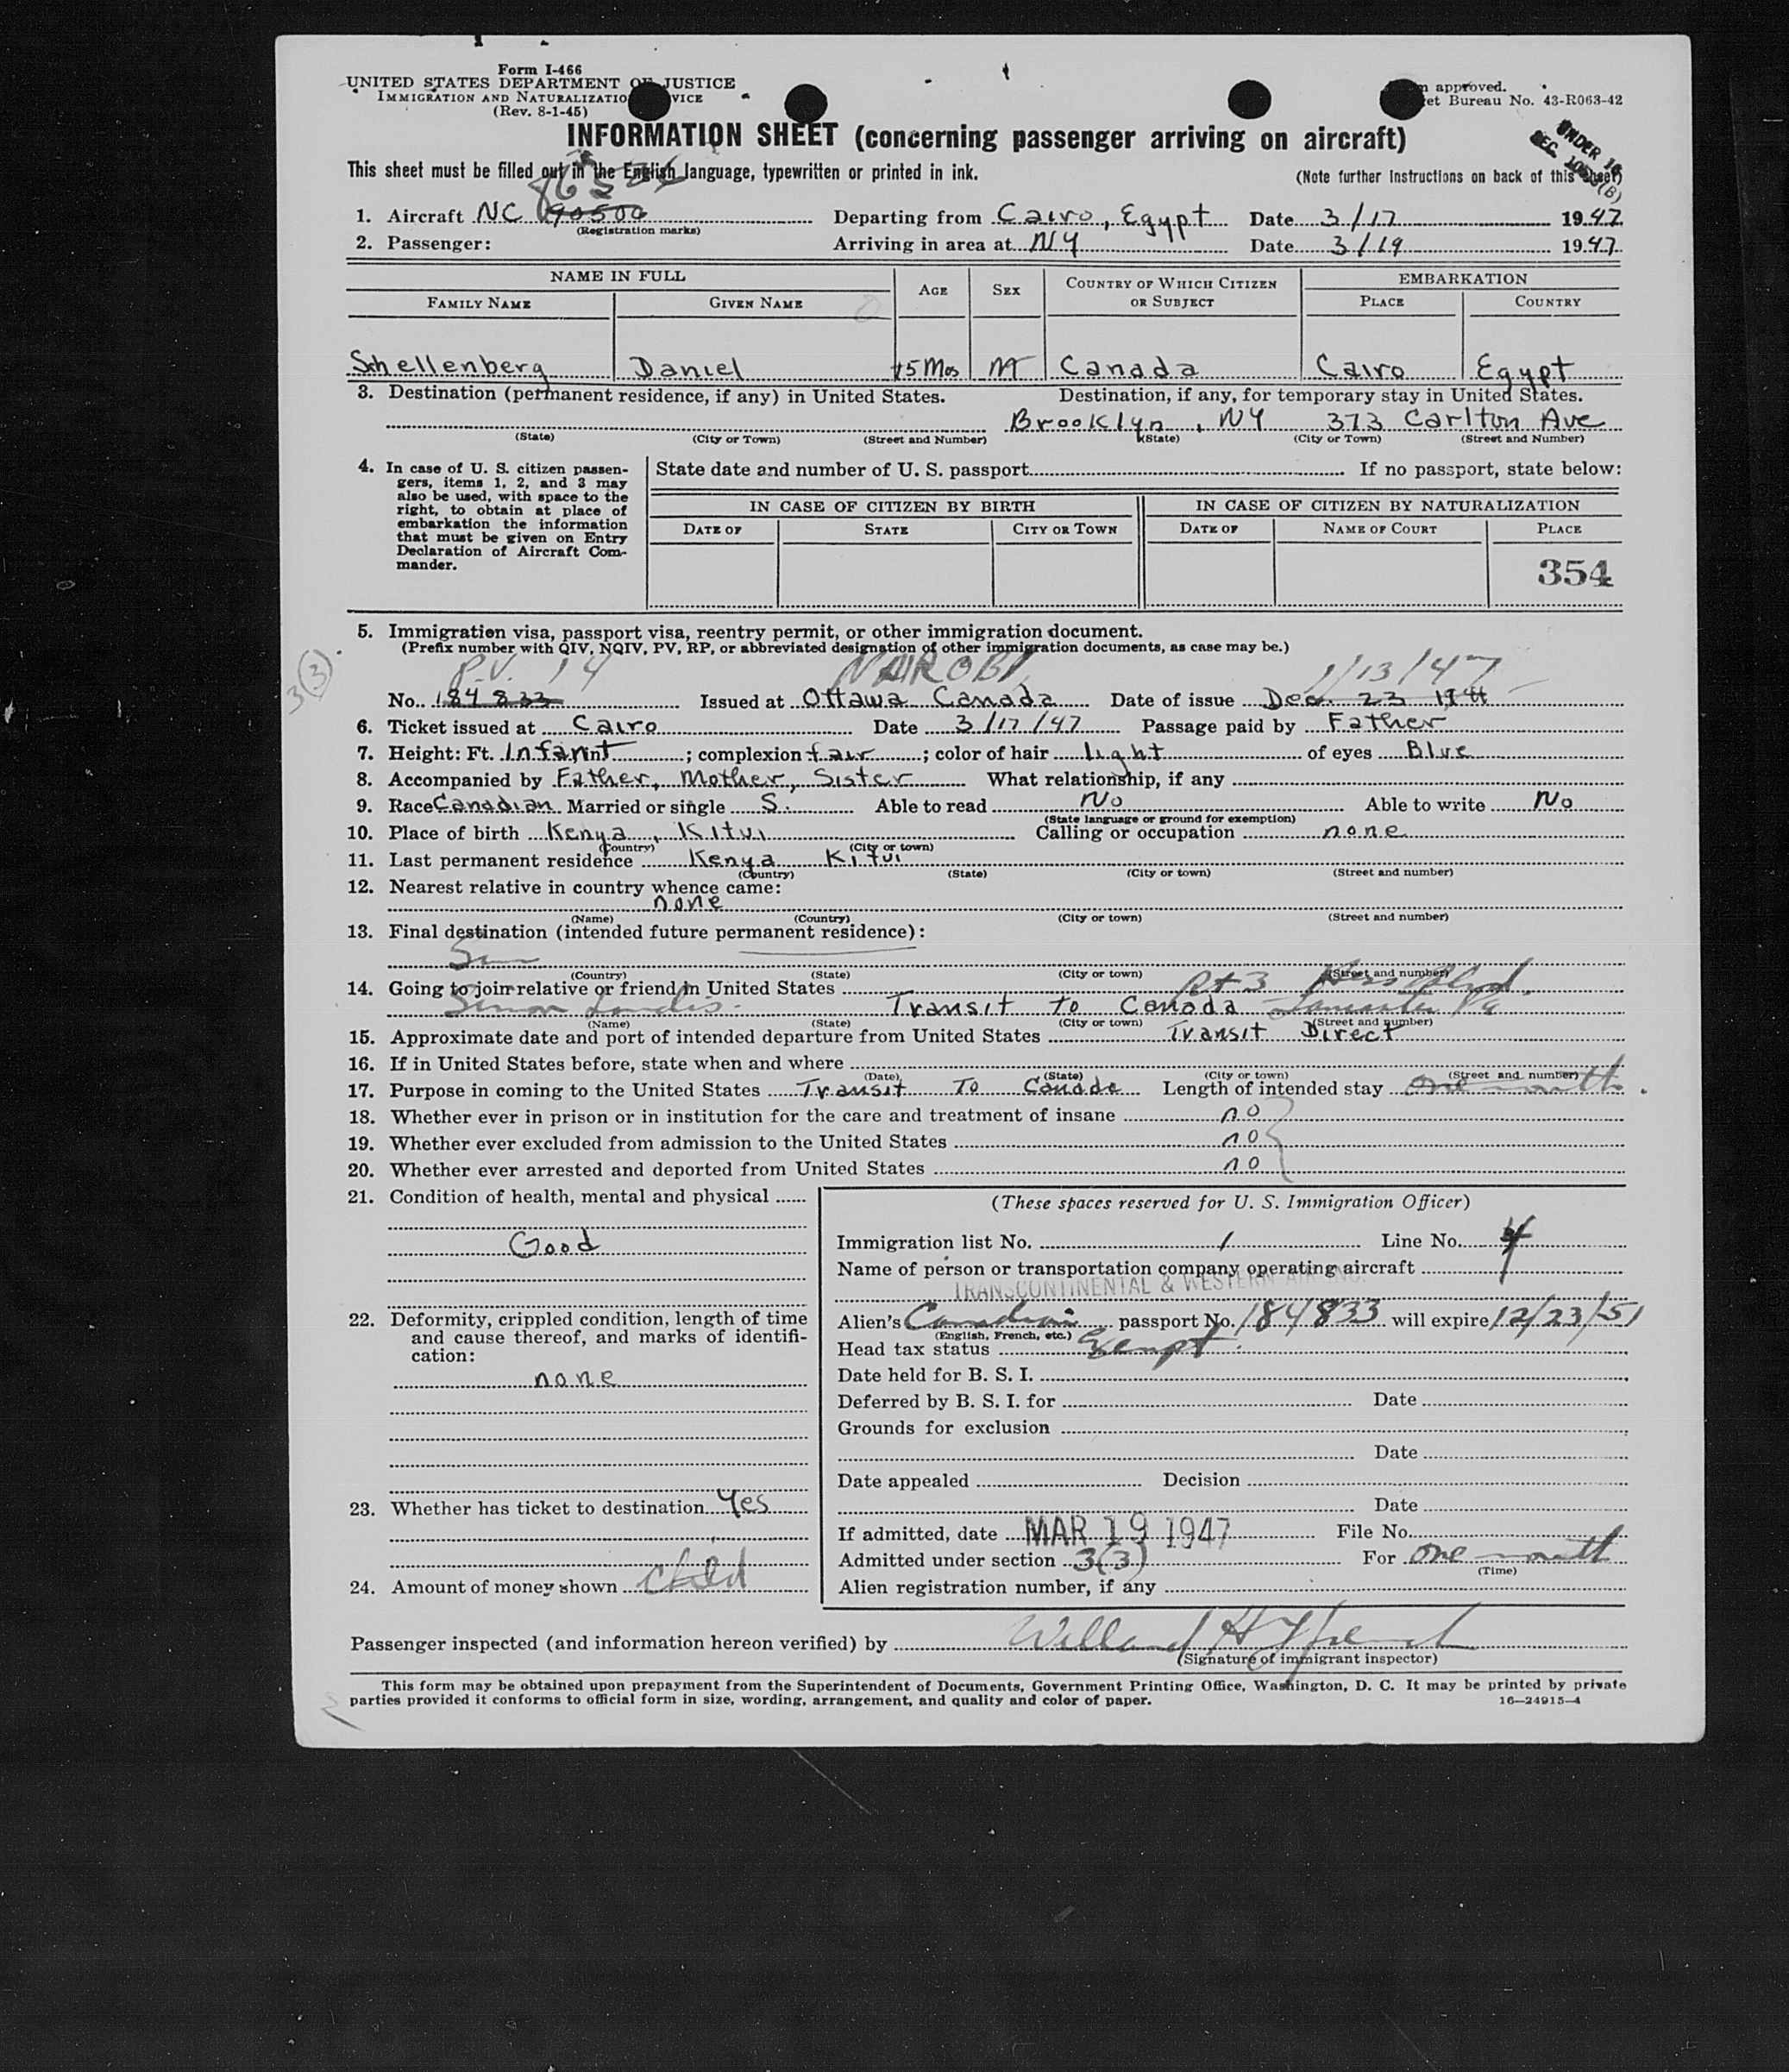 Form I-466
UNITED STATES DEPARTMENT OF JUSTICE
IMMIGRATION AND NATURALIZATION SERVICE
(Rev. 8-1-45)
approved.
et Bureau No. 43-R063-42
INFORMATION SHEET (concerning passenger arriving on aircraft)
UNDER 16
This sheet must be filled out in the English language, typewritten or printed in ink.
(Note further instructions on back of this sheet)
1. Aircraft NC 90500 Departing from Cairo, Egypt Date 3/17 1947
(Registration marks)
2. Passenger: Arriving in area at NY Date 3/19 1947
NAME IN FULL AGE SEX COUNTRY OF WHICH CITIZEN OR SUBJECT EMBARKATION
FAMILY NAME GIVEN NAME PLACE COUNTRY
Schellenberg Daniel 15 Mos M Canada Cairo Egypt
3. Destination (permanent residence, if any) in United States. Destination, if any, for temporary stay in United States.
Brooklyn, NY 373 Carlton Ave
(State) (City or Town) (Street and Number) (State) (City or Town) (Street and Number)
4. In case of U. S. citizen passen-
gers, items 1, 2, and 3 may
also be used, with space to the
right, to obtain at place of
embarkation the information
that must be given on Entry
Declaration of Aircraft Com-
mander.
State date and number of U. S. passport If no passport, state below:
IN CASE OF CITIZEN BY BIRTH IN CASE OF CITIZEN BY NATURALIZATION
DATE OF STATE CITY OR TOWN DATE OF NAME OF COURT PLACE
354
5. Immigration visa, passport visa, reentry permit, or other immigration document.
(Prefix number with QIV, NQIV, PV, RP, or abbreviated designation of other immigration documents, as case may be.)
3(3)
P.V. 14 NAIROBI 1/13/47
No. 184833 Issued at Ottawa Canada Date of issue Dec. 23 19
6. Ticket issued at Cairo Date 3/17/47 Passage paid by Father
7. Height: Ft. Infant ; complexion fair ; color of hair light of eyes Blue
8. Accompanied by Father, Mother, Sister What relationship, if any
9. Race Canadian Married or single S. Able to read No Able to write No
(State language or ground for exemption)
10. Place of birth Kenya, Kitui Calling or occupation none
(Country) (City or town)
11. Last permanent residence Kenya Kitui
(Country) (State) (City or town) (Street and number)
12. Nearest relative in country whence came:
none
(Name) (Country) (City or town) (Street and number)
13. Final destination (intended future permanent residence):
(Country) (State) (City or town) (Street and number)
14. Going to join relative or friend in United States Rt 3
Simon Landis. Transit to Canada Lancaster Pa
(Name) (State) (City or town) (Street and number)
15. Approximate date and port of intended departure from United States Transit Direct
16. If in United States before, state when and where
(Date) (State) (City or town) (Street and number)
17. Purpose in coming to the United States Transit To Canada Length of intended stay one month.
18. Whether ever in prison or in institution for the care and treatment of insane no
19. Whether ever excluded from admission to the United States no
20. Whether ever arrested and deported from United States no
21. Condition of health, mental and physical
Good
22. Deformity, crippled condition, length of time
and cause thereof, and marks of identifi-
cation:
none
23. Whether has ticket to destination Yes
24. Amount of money shown Child
(These spaces reserved for U. S. Immigration Officer)
Immigration list No. 1 Line No. 4
Name of person or transportation company operating aircraft
TRANSCONTINENTAL & WESTERN AIR INC.
Alien's Canadian passport No. 184833 will expire 12/23/51
(English, French, etc.)
Head tax status Exempt.
Date held for B. S. I.
Deferred by B. S. I. for Date
Grounds for exclusion
Date
Date appealed Decision
Date
If admitted, date MAR 19 1947 File No.
Admitted under section 3(3) For one month
(Time)
Alien registration number, if any
Passenger inspected (and information hereon verified) by
(Signature of immigrant inspector)
This form may be obtained upon prepayment from the Superintendent of Documents, Government Printing Office, Washington, D. C. It may be printed by private
parties provided it conforms to official form in size, wording, arrangement, and quality and color of paper.
16—24915-4